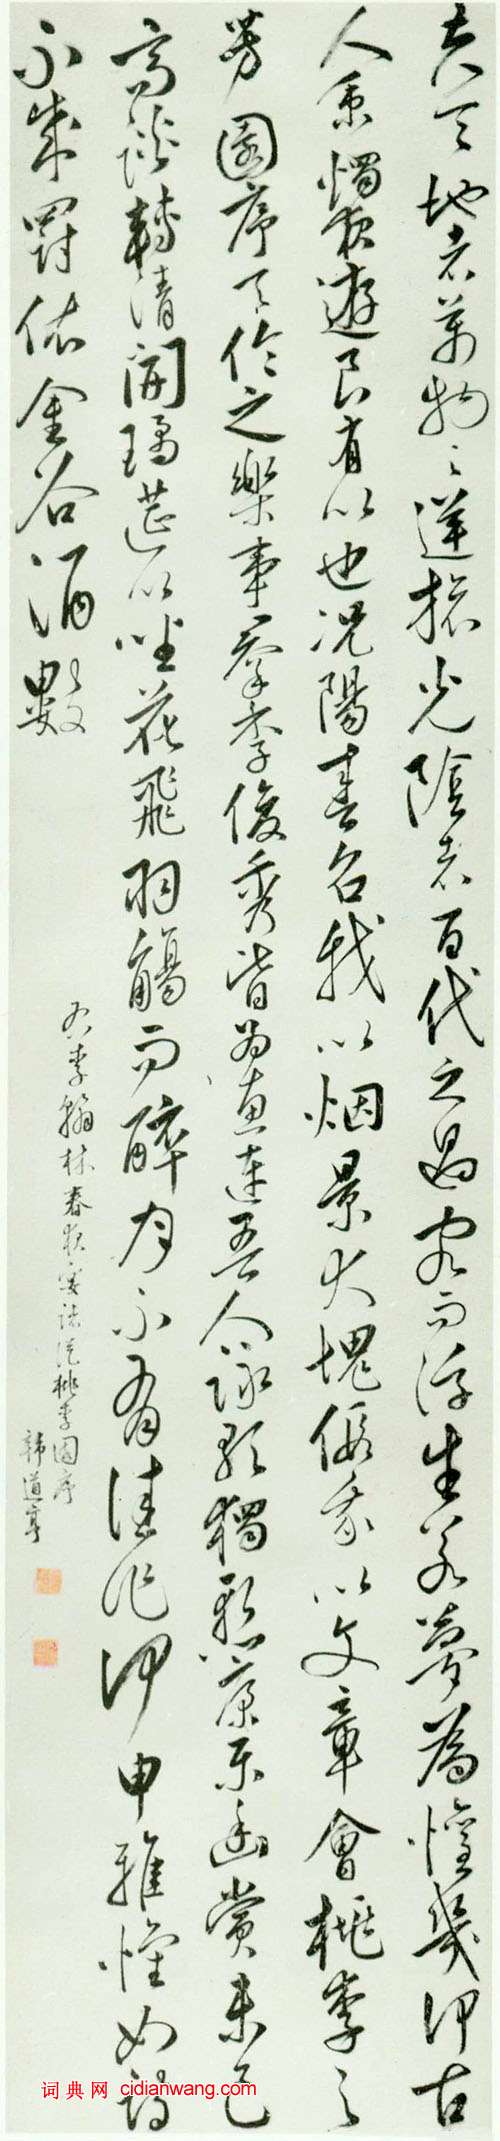 夫天地者萬物之逆旅光陰者百代之過客而浮生若夢為懽幾何古
人秉燭夜遊良有以也況陽春召我以烟景大塊假我以文章會桃李之
芳園序天倫之樂事羣季俊秀皆為惠連吾人詠歌獨慙康樂幽賞未已
高談轉清開瓊筵以坐花飛羽觴而醉月不有佳作何申雅懷如詩
不成罰依金谷酒數
右李翰林春夜宴諸從桃李園序
韓道亨
词典网 cidianwang.com